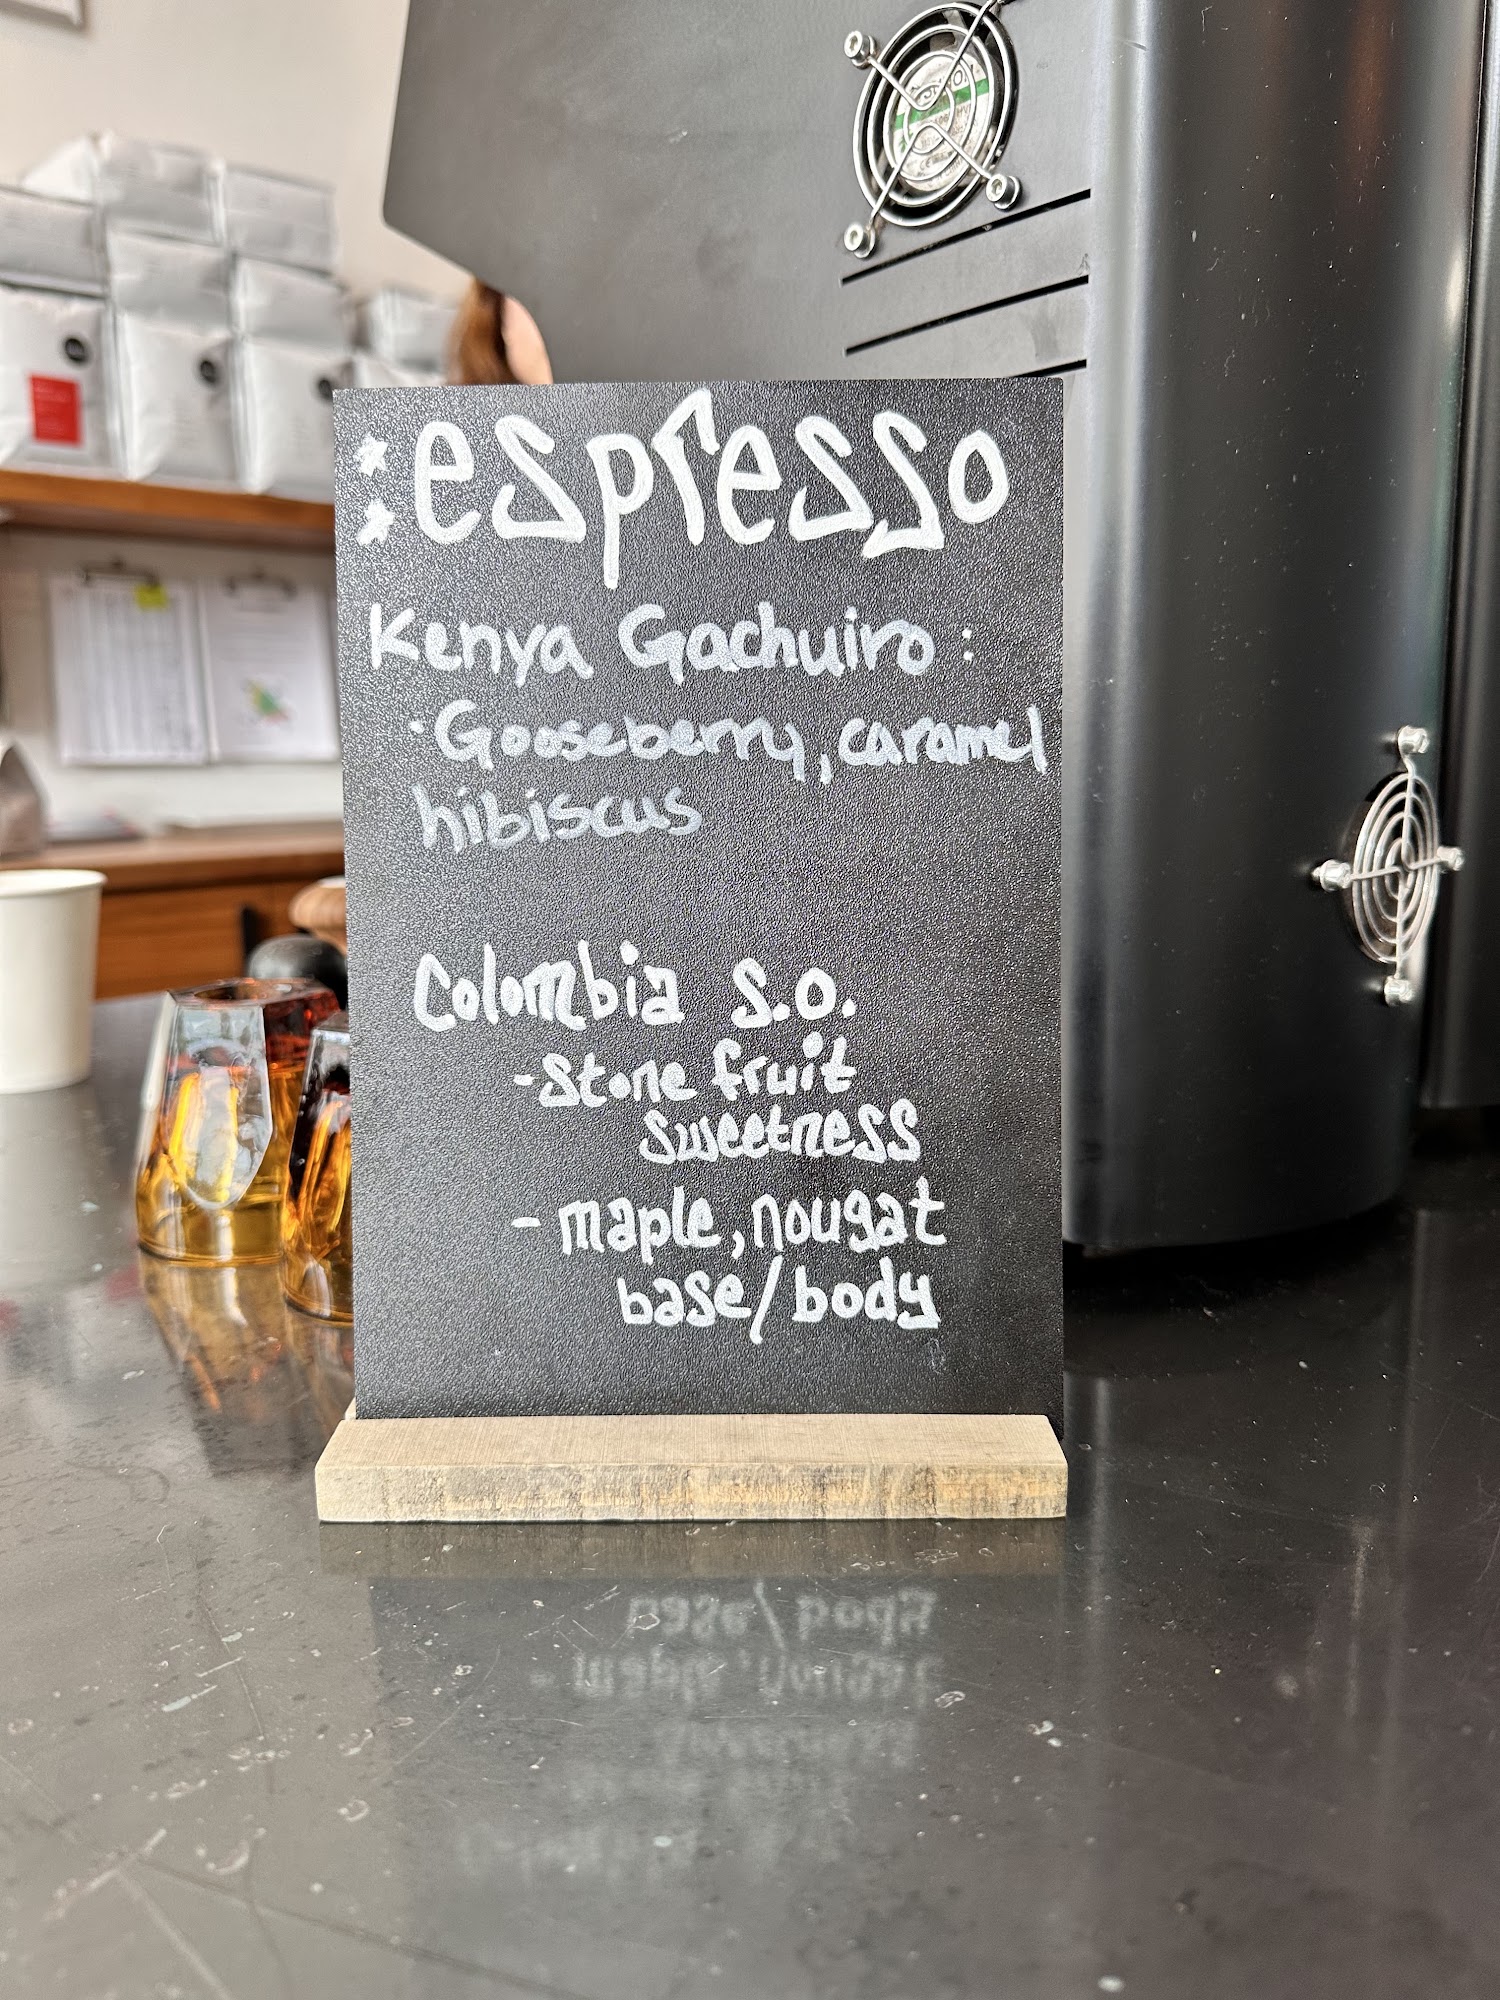 espresso
Kenya Gachuiro:
·Gooseberry, caramel
hibiscus
Colombia S.O.
-Stone fruit
sweetness
- maple, nougat
base/body